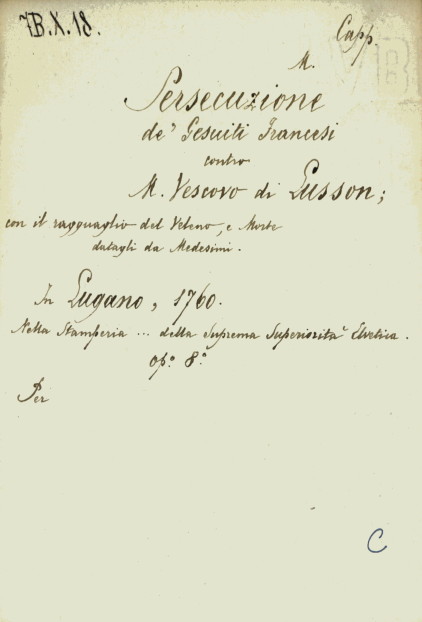 7B.X.18.
Capp.
M.
Persecuzione
de' Gesuiti Francesi
contro
M. Vescovo di Lusson;
con il ragguaglio del Veleno, e Morte
datagli da Medesimi.
In Lugano, 1760.
Nella Stamperia ... della Suprema Superiorità Elvetica.
op.º 8.º
Per
C